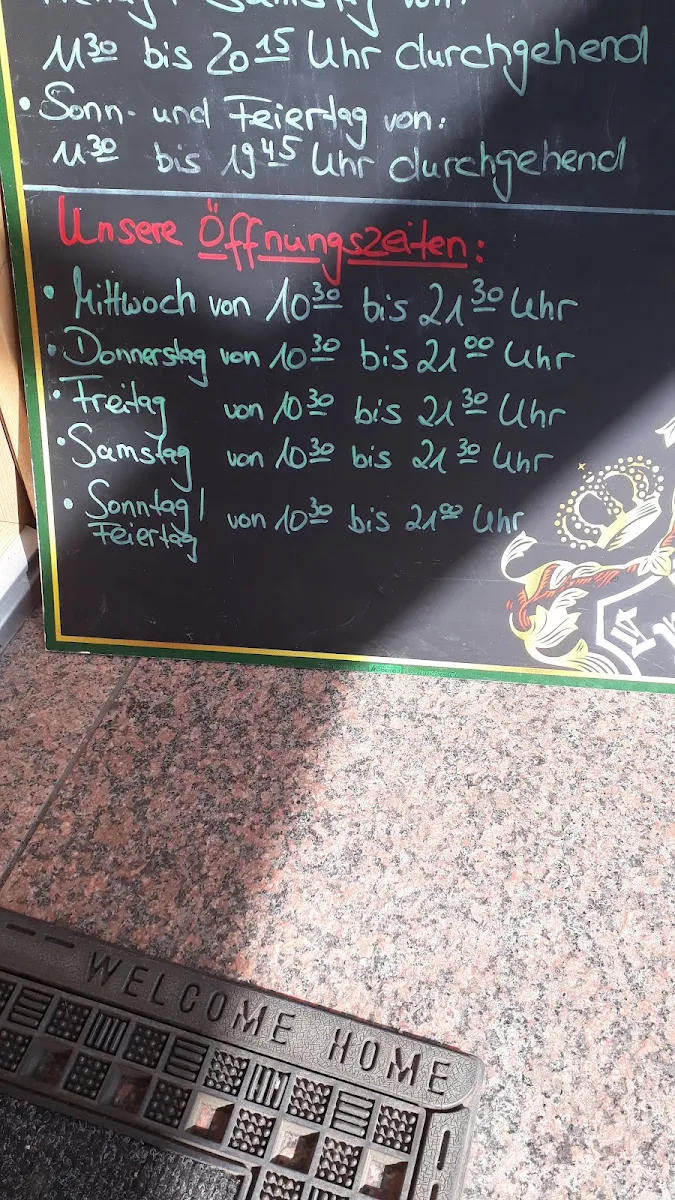 Freitag / Samstag von:
11³⁰ bis 20¹⁵ Uhr durchgehend
• Sonn- und Feiertag von:
11³⁰ bis 19⁴⁵ Uhr durchgehend
Unsere Öffnungszeiten:
• Mittwoch von 10³⁰ bis 21³⁰ Uhr
• Donnerstag von 10³⁰ bis 21⁰⁰ Uhr
• Freitag von 10³⁰ bis 21³⁰ Uhr
• Samstag von 10³⁰ bis 21³⁰ Uhr
• Sonntag / Feiertag von 10³⁰ bis 21⁰⁰ Uhr
WELCOME HOME